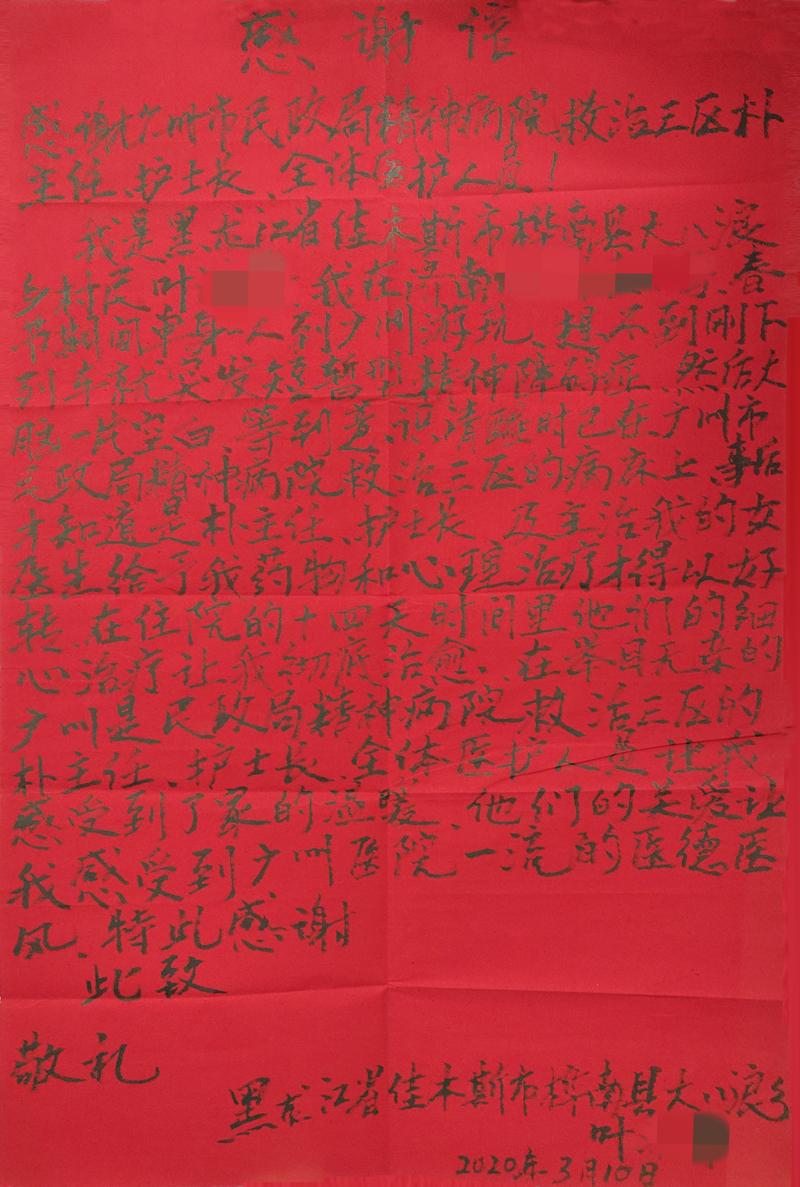 感谢信
感谢广州市民政局精神病院救治三区朴
主任、护士长、全体医护人员!
我是黑龙江省佳木斯市桦南县大八浪
乡村民叶 我在济南 春
节期间单身一人到广州游玩、想不到刚下
列车就突发短暂型精神障碍症、然后大
脑一片空白、等到意识清醒时已在广州市
民政局精神病院救治三区的病床上、事后
才知道是朴主任、护士长 及主治我的女
医生给予我药物和心理治疗才得以好
转、在住院的十四天时间里他们的细
心治疗让我彻底治愈、在举目无亲的
广州是民政局精神病院救治三区的
朴主任、护士长、全体医护人员让我
感受到了家的温暖、他们的关爱让
我感受到广州医院一流的医德医
风、特此感谢
此致
敬礼
黑龙江省佳木斯市桦南县大八浪乡
叶
2020年3月10日